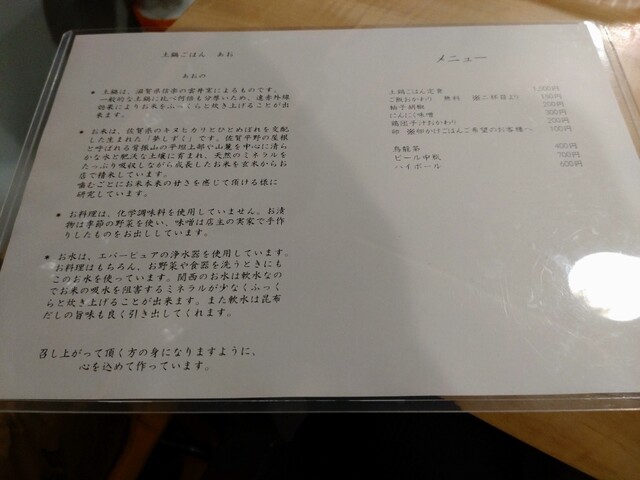 土鍋ごはん　あお
あおの
● 土鍋は、滋賀県信楽の雲井窯によるものです。
一般的な土鍋に比べ何倍も分厚いため、遠赤外線
効果によりお米をふっくらと炊き上げることが出
来ます。
● お米は、佐賀県のキヌヒカリとひとめぼれを交配
した生まれた「夢しずく」です。佐賀平野の屋根
と呼ばれる背振山の平坦上部や山麓を中心に清ら
かな水と肥沃な土壌に育まれ、天然のミネラルを
たっぷり吸収しながら成長したお米を玄米からお
店で精米しています。
噛むごとにお米本来の甘さを感じて頂ける様に
研究しています。
● お料理は、化学調味料を使用していません。お漬
物は季節の野菜を使い、味噌は店主の実家で手作
りしたものをお出ししています。
● お水は、エバーピュアの浄水器を使用しています。
お料理はもちろん、お野菜や食器を洗うときにも
このお水を使っています。関西のお水は軟水なの
でお米の吸水を阻害するミネラルが少なくふっく
らと炊き上げることが出来ます。また軟水は昆布
だしの旨味も良く引き出してくれます。
召し上がって頂く方の身になりますように、
心を込めて作っています。
メニュー
土鍋ごはん定食 1,000円
ご飯おかわり　無料　※二杯目より 150円
柚子胡椒 200円
にんにく味噌 300円
鶏団子汁おかわり 200円
卵　※卵かけごはんご希望のお客様へ 100円
烏龍茶 400円
ビール中瓶 700円
ハイボール 600円